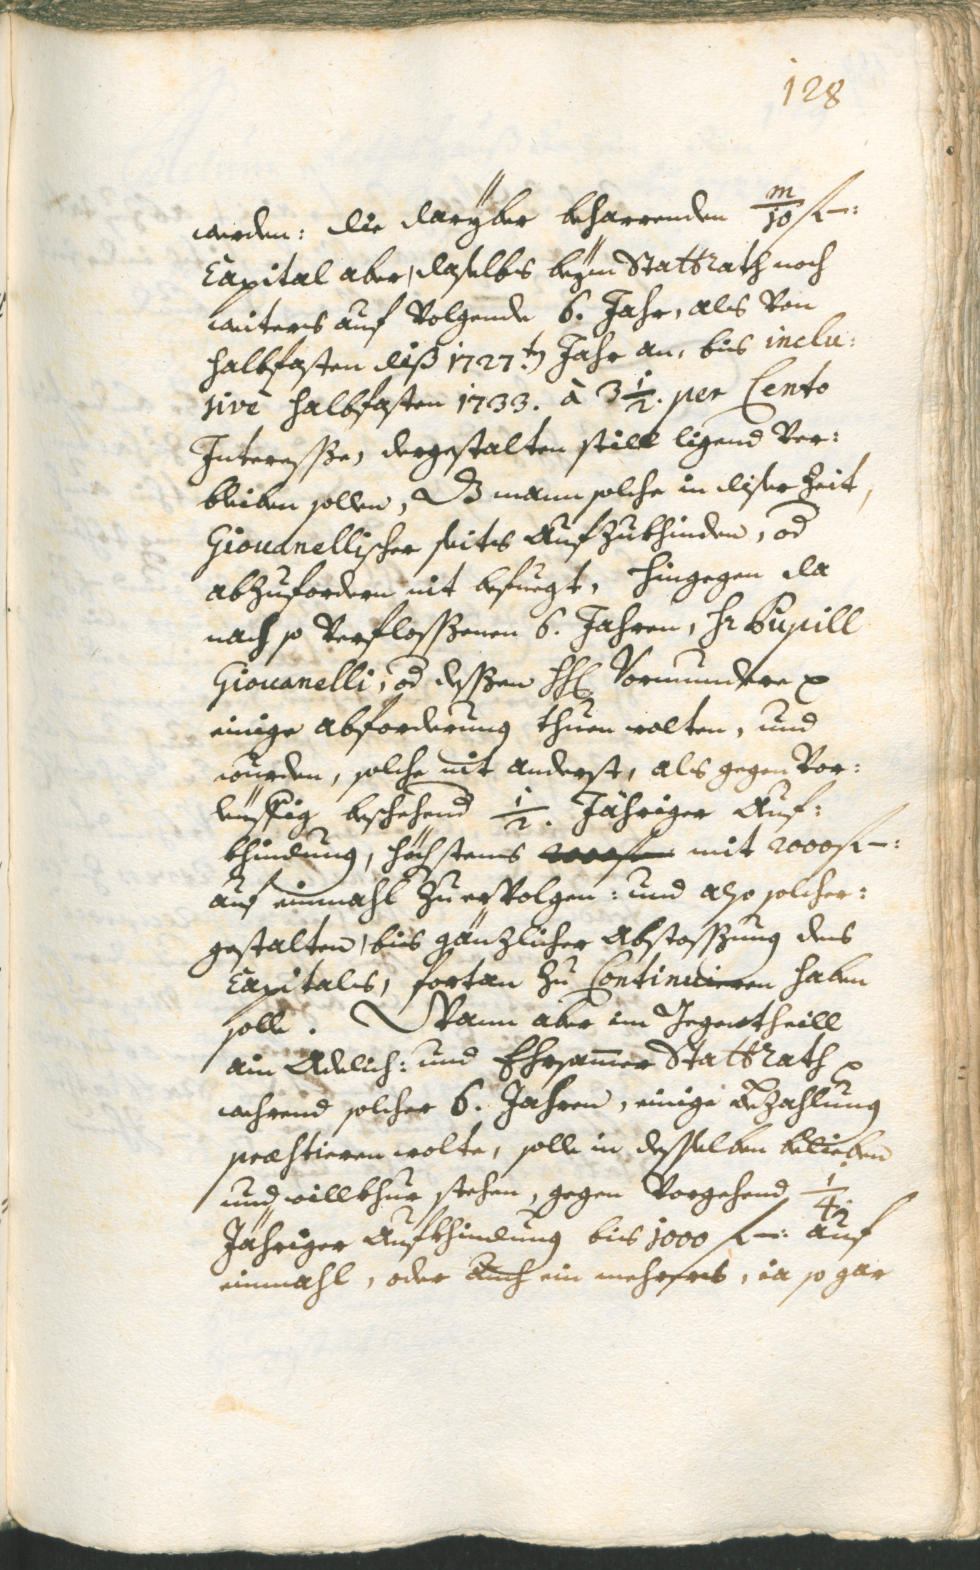 128
werden: die darÿber beharrenden m/10 f:
Capital aber, daselbs beÿm Stattrath noch
weiters auf Volgende 6. Jahr, als Von
halbfasten diß 1727.ten Jahr an, bis inclu:
sivè halbfasten 1733. à 3 1/2. per Cento
Interesße, dergestalten still ligend Ver:
bleiben sollen, dz mann solche in diser Zeit,
Giouanellischer seits Aufzukhinden, od
abzufordern nit befuegt, hingegen da
nach so Verflosßenen 6. Jahren, hr Pupill
Giouanelli, od desßen hh Vormundere
einige abforderung thuen wolten, und
wurden, solche nit anderst, als gegen Vor:
leüffig beschehend 1/2. Jähriger Auf:
khindung, höchstens 2000 f mit 2000 f:
auf einmahl zu erVolgen: und also solcher:
gestalten, bis gänzlicher Abstosßung dens
Capitals, fortan zu Continuieren haben
solle. Wann aber im Gegentheill
ain Adelich: und Ehrsammer Stattrath
wehrend solcher 6. Jahren, einige Bezahlung
præstieren wolte, solle in desselben belieben
und willkhur stehen, gegen Vorgehend 1/4
Jähriger Aufkhindung bis 1000 f: auf
einmahl, oder auch ein mehrers, ia so gar